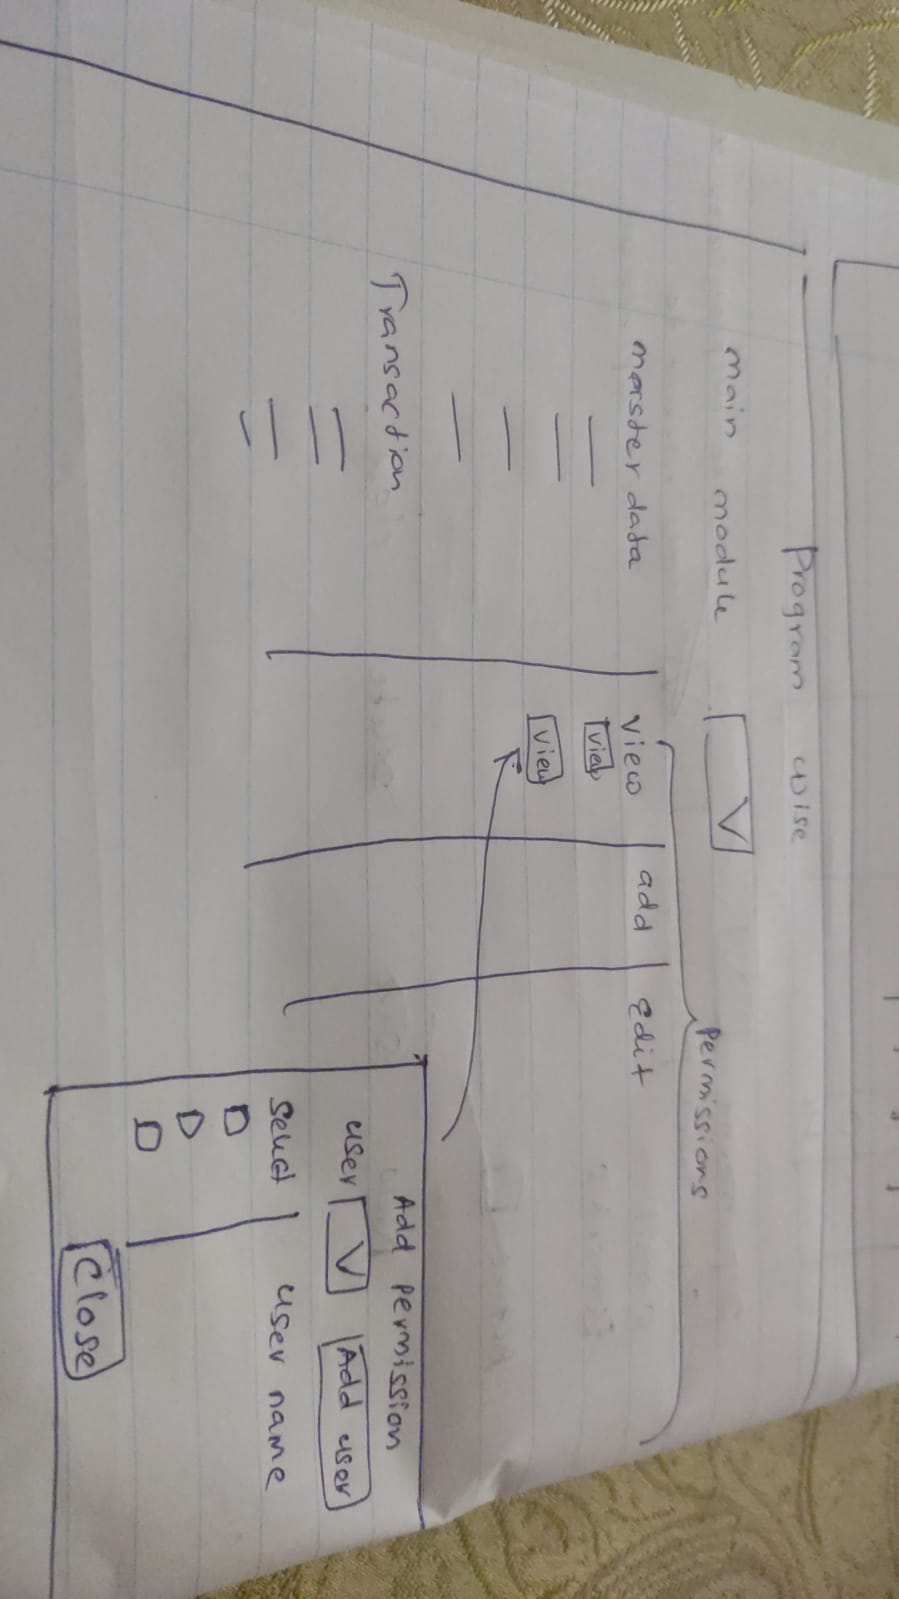 Program wise
main module
Permissions
master data view add edit
view
view
Transaction
Add permission
user Add user
Select user name
Close